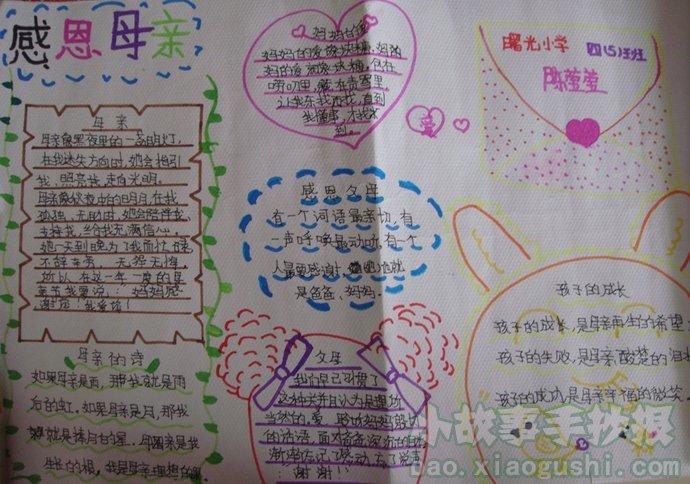 感恩母亲
母亲
母亲像黑夜里的一盏明灯,
在我迷失方向时,她会指引
我,照亮我走向光明。
母亲像伙伴中的明月,在我
孤独、无助时,她会陪伴我,
支持我,给我充满信心。
她一天到晚为了我而忙碌,
不辞辛劳,无怨无悔。
所以在这一年一度的母
亲节我要说:“妈妈您
谢谢!我爱您!
母亲的诗
如果母亲是雨,那我就是雨
后的虹,如果母亲是月,那我
就是捧月的星。母亲是我
生长的根,我是母亲理想的果。
妈妈的爱
妈妈的爱像块糖,妈妈
的爱
唠叨里,藏在责骂里,
让我东找西找,直到
我懂事,才找
到。
感恩父母
有一个词语最亲切,有
一声呼唤最动听,有一个
人最要感谢,他就
是爸爸、妈妈。
父母
我们早已习惯了
这种关并且认为是理所
当然的爱,
的话语,面对爸爸深沉的
渐渐忘记了感动,忘了说声
谢谢!
曙光小学
四(5)班
陈莹莹
爱
孩子的成长
孩子的成长,是母亲再生的希望
孩子的失败,是母亲酸楚的泪水
孩子的成功,是母亲幸福的微笑
小故事手抄报
bao.xiaogushi.com